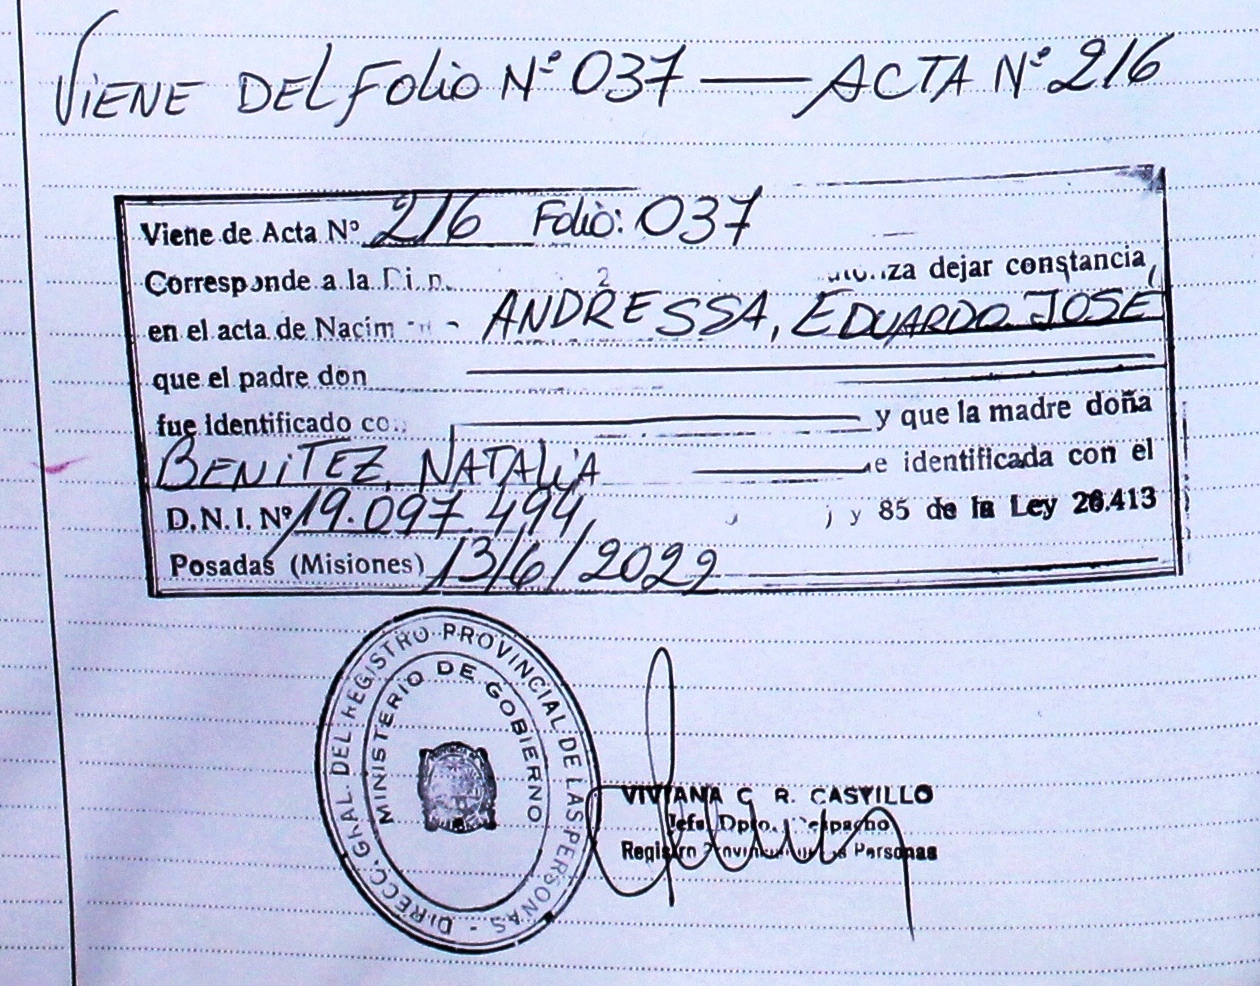 VIENE DEL FOLIO Nº 037 — ACTA Nº 216
Viene de Acta Nº 216 Folio: 037
Corresponde a la dejar constancia
en el acta de ANDRESSA, EDUARDO JOSE
que el padre don
fue identificado y que la madre doña
BENITEZ, NATALIA identificada con el
D.N.I. Nº 19.097.494, y 85 de la Ley 26.413
Posadas (Misiones) 13/6/2022
DIRECC. GRAL. DEL REGISTRO PROVINCIAL DE LAS PERSONAS -
MINISTERIO DE GOBIERNO
VIVIANA C. R. CASTILLO
Jefa Dpto. Despacho
Registro Personas